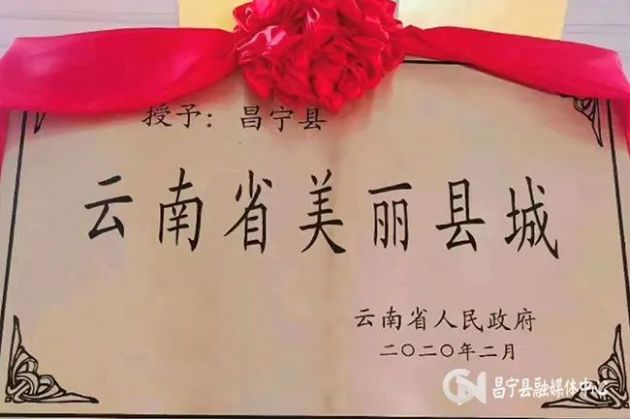 授予：昌宁县
云南省美丽县城
云南省人民政府
二〇二〇年二月
昌宁县融媒体中心